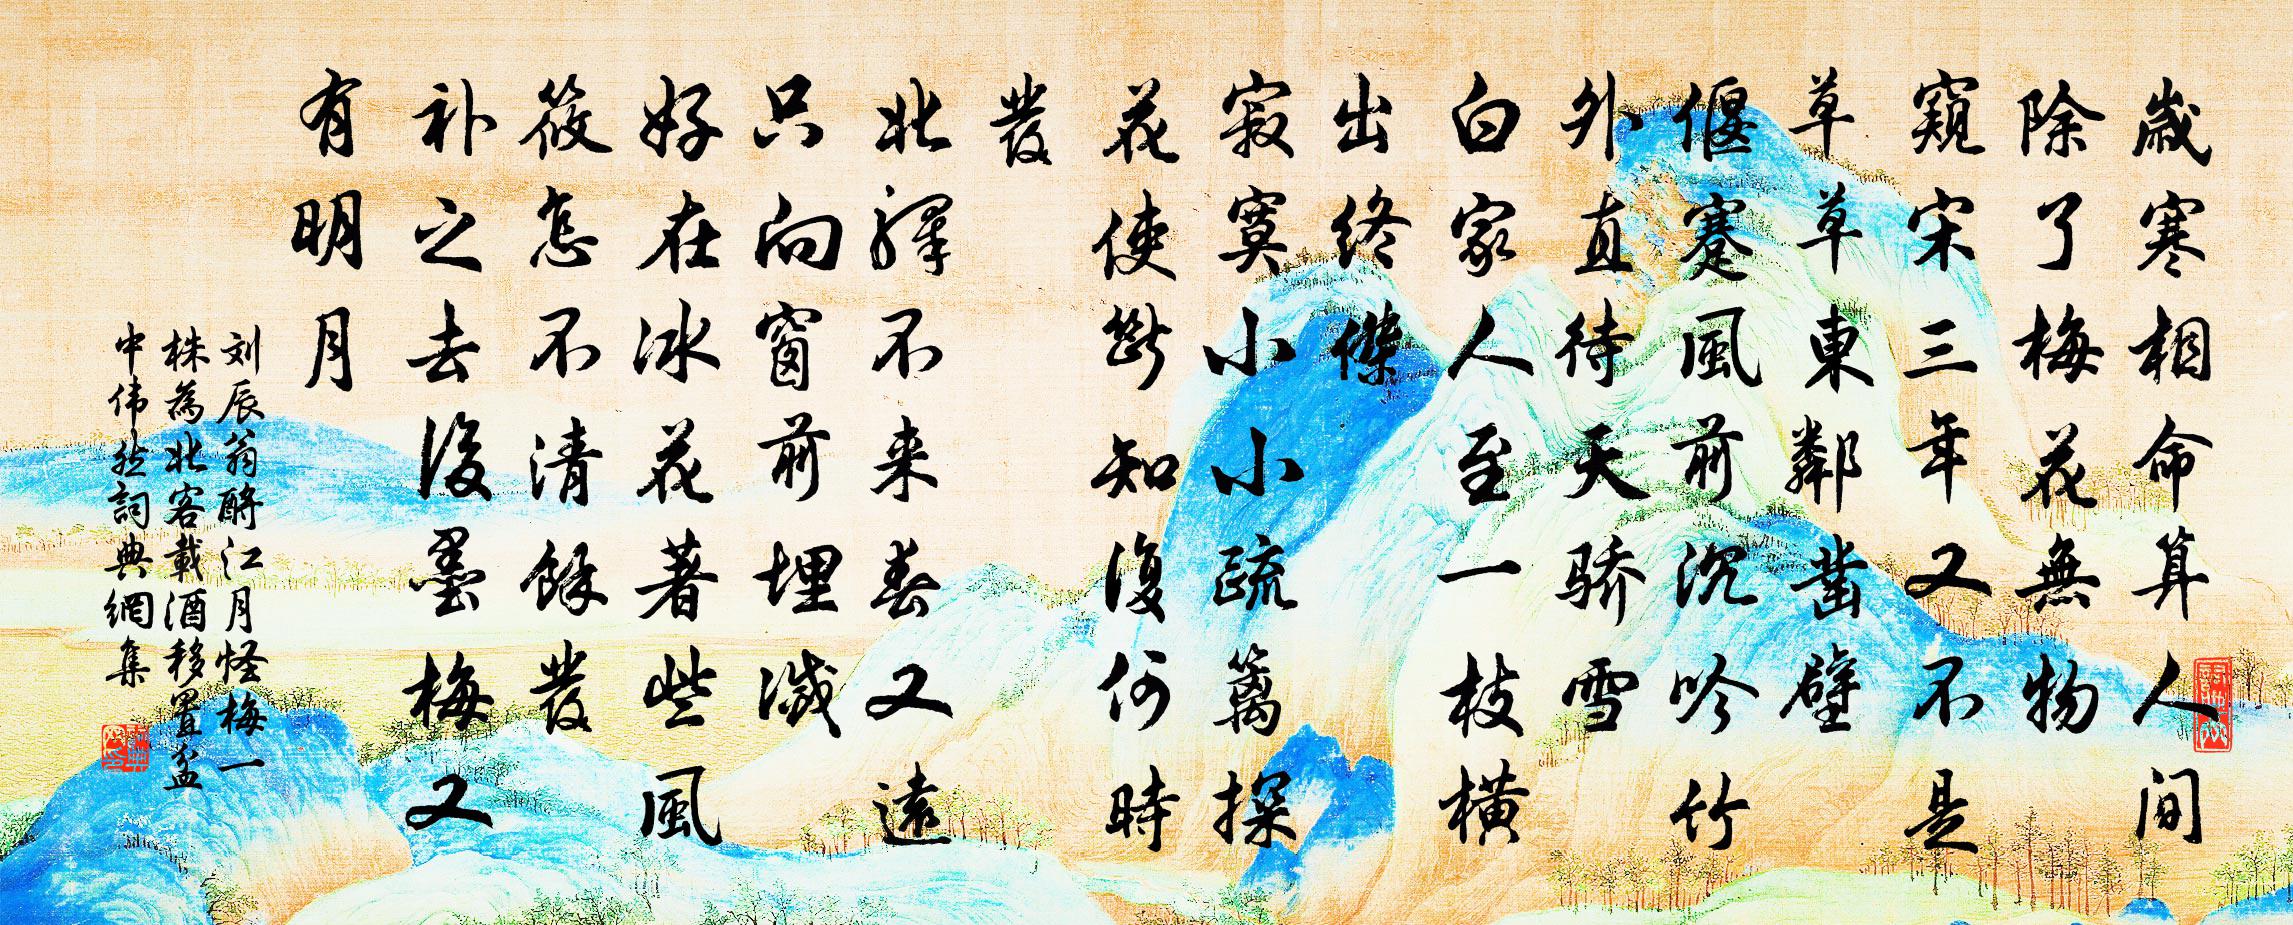 歲寒相命算人间
除了梅花無物
窺宋三年又不是
草草東鄰鑿壁
偃蹇風前沉吟竹
外直待天骄雪
白家人至一枝橫
出終傑
寂寞小小疏篱探
花使断知復何時
發
北驛不来春又遠
只向窗前埋滅
好在冰花著些風
筱怎不清餘發
补之去後墨梅又
有明月
刘辰翁酹江月怪梅一
株為北客載酒移置盆
中伟然詞典網集